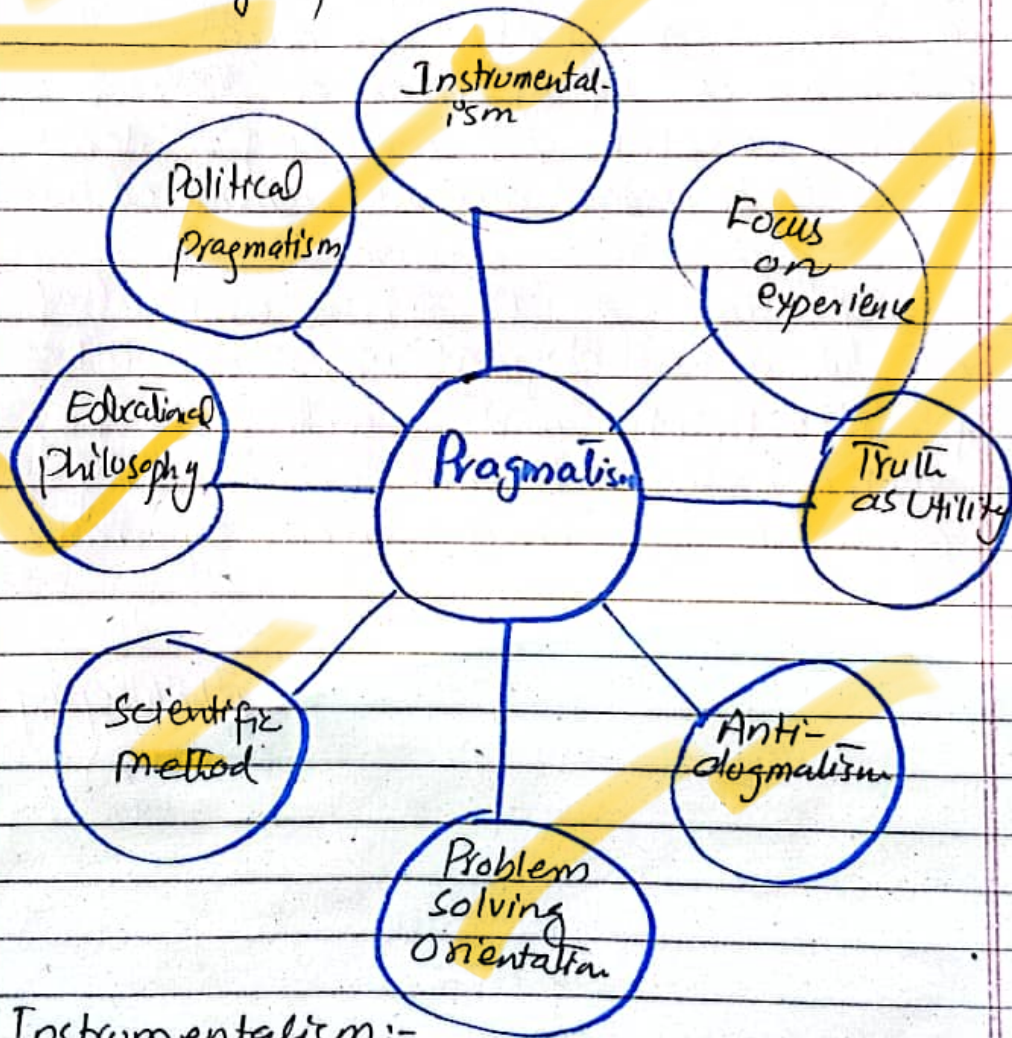 Instrumental-
ism
Political
pragmatism
Focus
on
experience
Educational
philosophy
Pragmatism
Truth
as Utility
Scientific
method
Anti-
dogmatism
Problem
solving
Orientation
Instrumentalism:-